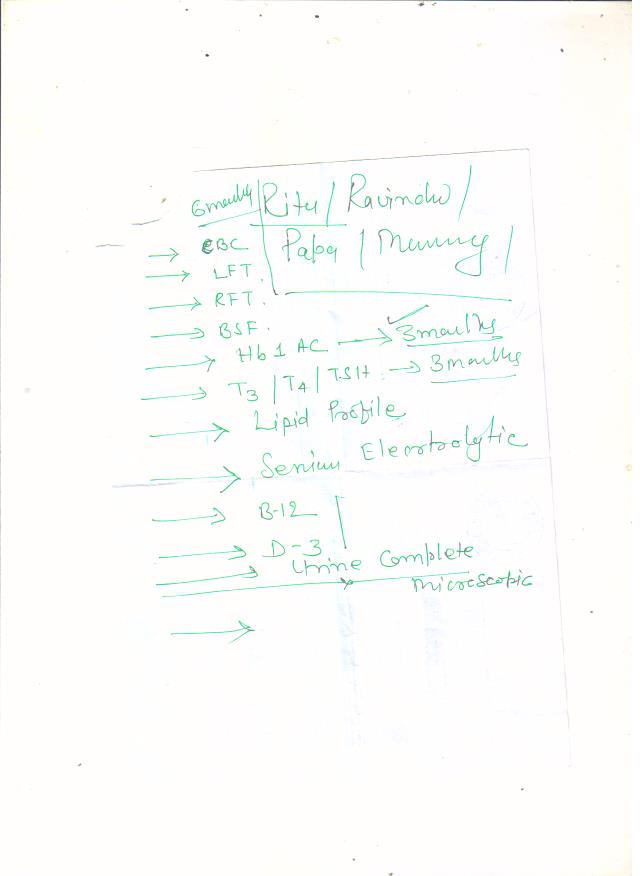 6 monthly Ritu / Ravindra /
Papa / Mummy /
→ CBC
→ LFT.
→ RFT.
→ BSF.
→ Hb 1 AC → ✓ 3 months
→ T3 / T4 / TSH → 3 months
→ Lipid Profile
→ Serium Electrolytic
→ B-12
→ D-3
→ Urine Complete
Microscopic
→